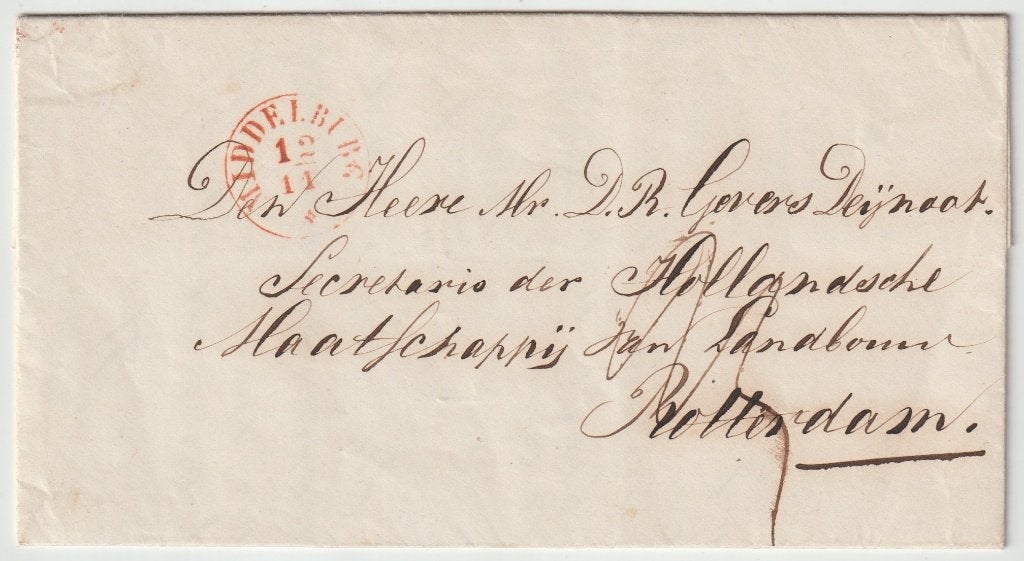 MIDDELBURG
12
11
Den Heere Mr. D. R. Gevers Deijnoot.
Secretaris der Hollandsche
Maatschappij van Landbouw
Rotterdam.